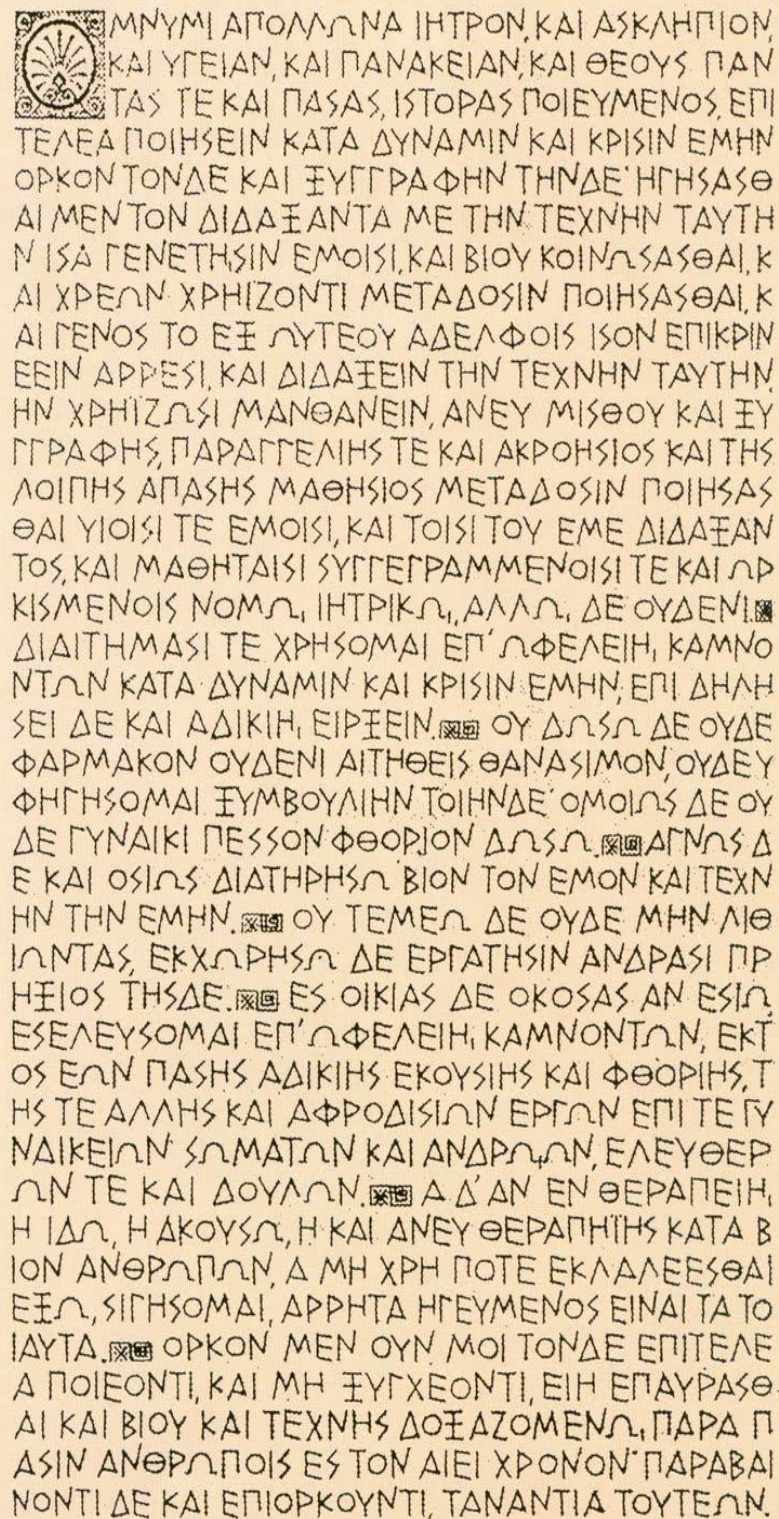 ΟΜΝΥΜΙ ΑΠΟΛΛΩΝΑ ΙΗΤΡΟΝ, ΚΑΙ ΑΣΚΛΗΠΙΟΝ,
ΚΑΙ ΥΓΕΙΑΝ, ΚΑΙ ΠΑΝΑΚΕΙΑΝ, ΚΑΙ ΘΕΟΥΣ ΠΑΝ
ΤΑΣ ΤΕ ΚΑΙ ΠΑΣΑΣ, ΙΣΤΟΡΑΣ ΠΟΙΕΥΜΕΝΟΣ, ΕΠΙ
ΤΕΛΕΑ ΠΟΙΗΣΕΙΝ ΚΑΤΑ ΔΥΝΑΜΙΝ ΚΑΙ ΚΡΙΣΙΝ ΕΜΗΝ
ΟΡΚΟΝ ΤΟΝΔΕ ΚΑΙ ΞΥΓΓΡΑΦΗΝ ΤΗΝΔΕ· ΗΓΗΣΑΣΘ
ΑΙ ΜΕΝ ΤΟΝ ΔΙΔΑΞΑΝΤΑ ΜΕ ΤΗΝ ΤΕΧΝΗΝ ΤΑΥΤΗ
Ν ΙΣΑ ΓΕΝΕΤΗΣΙΝ ΕΜΟΙΣΙ, ΚΑΙ ΒΙΟΥ ΚΟΙΝΩΣΑΣΘΑΙ, Κ
ΑΙ ΧΡΕΩΝ ΧΡΗΙΖΟΝΤΙ ΜΕΤΑΔΟΣΙΝ ΠΟΙΗΣΑΣΘΑΙ, Κ
ΑΙ ΓΕΝΟΣ ΤΟ ΕΞ ΩΥΤΕΟΥ ΑΔΕΛΦΟΙΣ ΙΣΟΝ ΕΠΙΚΡΙΝ
ΕΕΙΝ ΑΡΡΕΣΙ, ΚΑΙ ΔΙΔΑΞΕΙΝ ΤΗΝ ΤΕΧΝΗΝ ΤΑΥΤΗΝ,
ΗΝ ΧΡΗΪΖΩΣΙ ΜΑΝΘΑΝΕΙΝ, ΑΝΕΥ ΜΙΣΘΟΥ ΚΑΙ ΞΥ
ΓΓΡΑΦΗΣ, ΠΑΡΑΓΓΕΛΙΗΣ ΤΕ ΚΑΙ ΑΚΡΟΗΣΙΟΣ ΚΑΙ ΤΗΣ
ΛΟΙΠΗΣ ΑΠΑΣΗΣ ΜΑΘΗΣΙΟΣ ΜΕΤΑΔΟΣΙΝ ΠΟΙΗΣΑΣ
ΘΑΙ ΥΙΟΙΣΙ ΤΕ ΕΜΟΙΣΙ, ΚΑΙ ΤΟΙΣΙ ΤΟΥ ΕΜΕ ΔΙΔΑΞΑΝ
ΤΟΣ, ΚΑΙ ΜΑΘΗΤΑΙΣΙ ΣΥΓΓΕΓΡΑΜΜΕΝΟΙΣΙ ΤΕ ΚΑΙ ΩΡ
ΚΙΣΜΕΝΟΙΣ ΝΟΜΩͺ ΙΗΤΡΙΚΩͺ, ΑΛΛΩͺ ΔΕ ΟΥΔΕΝΙ.
ΔΙΑΙΤΗΜΑΣΙ ΤΕ ΧΡΗΣΟΜΑΙ ΕΠ' ΩΦΕΛΕΙΗͺ ΚΑΜΝΟ
ΝΤΩΝ ΚΑΤΑ ΔΥΝΑΜΙΝ ΚΑΙ ΚΡΙΣΙΝ ΕΜΗΝ, ΕΠΙ ΔΗΛΗ
ΣΕΙ ΔΕ ΚΑΙ ΑΔΙΚΙΗͺ ΕΙΡΞΕΙΝ. ΟΥ ΔΩΣΩ ΔΕ ΟΥΔΕ
ΦΑΡΜΑΚΟΝ ΟΥΔΕΝΙ ΑΙΤΗΘΕΙΣ ΘΑΝΑΣΙΜΟΝ, ΟΥΔΕ Υ
ΦΗΓΗΣΟΜΑΙ ΞΥΜΒΟΥΛΙΗΝ ΤΟΙΗΝΔΕ· ΟΜΟΙΩΣ ΔΕ ΟΥ
ΔΕ ΓΥΝΑΙΚΙ ΠΕΣΣΟΝ ΦΘΟΡΙΟΝ ΔΩΣΩ. ΑΓΝΩΣ Δ
Ε ΚΑΙ ΟΣΙΩΣ ΔΙΑΤΗΡΗΣΩ ΒΙΟΝ ΤΟΝ ΕΜΟΝ ΚΑΙ ΤΕΧΝ
ΗΝ ΤΗΝ ΕΜΗΝ. ΟΥ ΤΕΜΕΩ ΔΕ ΟΥΔΕ ΜΗΝ ΛΙΘ
ΙΩΝΤΑΣ, ΕΚΧΩΡΗΣΩ ΔΕ ΕΡΓΑΤΗΣΙΝ ΑΝΔΡΑΣΙ ΠΡ
ΗΞΙΟΣ ΤΗΣΔΕ. ΕΣ ΟΙΚΙΑΣ ΔΕ ΟΚΟΣΑΣ ΑΝ ΕΣΙΩ,
ΕΣΕΛΕΥΣΟΜΑΙ ΕΠ' ΩΦΕΛΕΙΗͺ ΚΑΜΝΟΝΤΩΝ, ΕΚΤ
ΟΣ ΕΩΝ ΠΑΣΗΣ ΑΔΙΚΙΗΣ ΕΚΟΥΣΙΗΣ ΚΑΙ ΦΘΟΡΙΗΣ, Τ
ΗΣ ΤΕ ΑΛΛΗΣ ΚΑΙ ΑΦΡΟΔΙΣΙΩΝ ΕΡΓΩΝ ΕΠΙ ΤΕ ΓΥ
ΝΑΙΚΕΙΩΝ ΣΩΜΑΤΩΝ ΚΑΙ ΑΝΔΡΩͺΩΝ, ΕΛΕΥΘΕΡ
ΩΝ ΤΕ ΚΑΙ ΔΟΥΛΩΝ. Α Δ' ΑΝ ΕΝ ΘΕΡΑΠΕΙΗͺ
Η ΙΔΩ, Η ΑΚΟΥΣΩ, Η ΚΑΙ ΑΝΕΥ ΘΕΡΑΠΗΪΗΣ ΚΑΤΑ Β
ΙΟΝ ΑΝΘΡΩΠΩΝ, Α ΜΗ ΧΡΗ ΠΟΤΕ ΕΚΛΑΛΕΕΣΘΑΙ
ΕΞΩ, ΣΙΓΗΣΟΜΑΙ, ΑΡΡΗΤΑ ΗΓΕΥΜΕΝΟΣ ΕΙΝΑΙ ΤΑ ΤΟ
ΙΑΥΤΑ. ΟΡΚΟΝ ΜΕΝ ΟΥΝ ΜΟΙ ΤΟΝΔΕ ΕΠΙΤΕΛΕ
Α ΠΟΙΕΟΝΤΙ, ΚΑΙ ΜΗ ΞΥΓΧΕΟΝΤΙ, ΕΙΗ ΕΠΑΥΡΑΣΘ
ΑΙ ΚΑΙ ΒΙΟΥ ΚΑΙ ΤΕΧΝΗΣ ΔΟΞΑΖΟΜΕΝΩͺ ΠΑΡΑ Π
ΑΣΙΝ ΑΝΘΡΩΠΟΙΣ ΕΣ ΤΟΝ ΑΙΕΙ ΧΡΟΝΟΝ· ΠΑΡΑΒΑΙ
ΝΟΝΤΙ ΔΕ ΚΑΙ ΕΠΙΟΡΚΟΥΝΤΙ, ΤΑΝΑΝΤΙΑ ΤΟΥΤΕΩΝ.